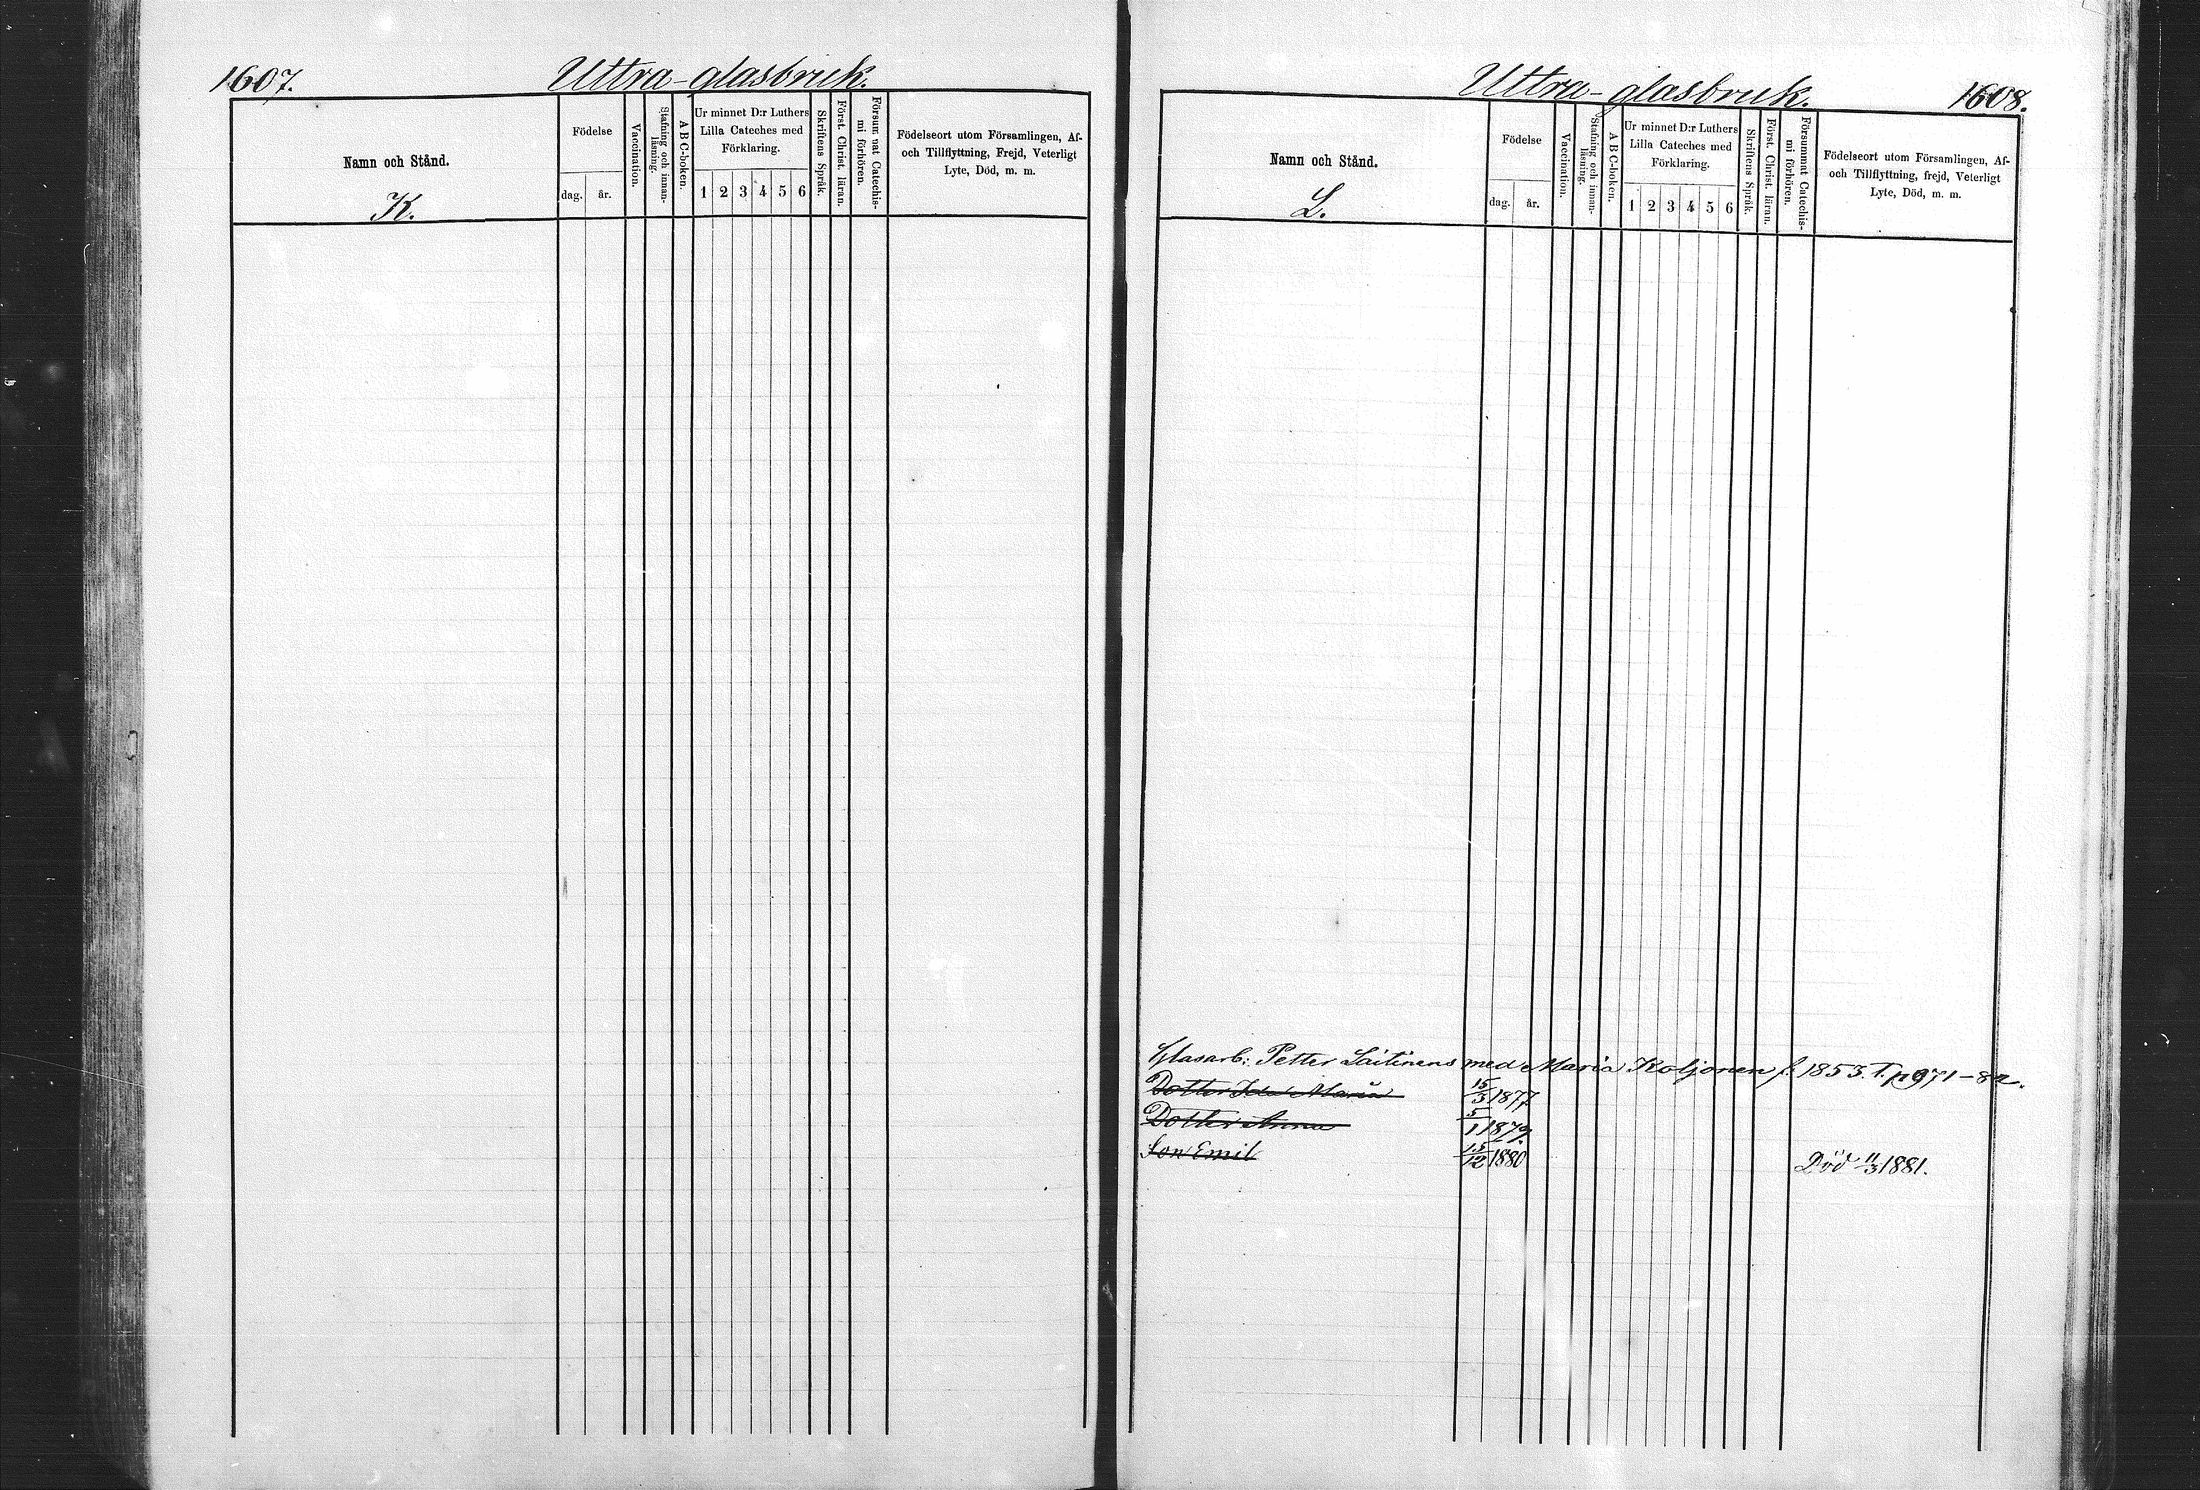 1607.
Uttra-glasbruk.
Namn och Stånd.
K.
Födelse
dag.
år.
Vaccination.
Stafning och innan-
läsning.
A B C-boken.
Ur minnet D:r Luthers
Lilla Cateches med
Förklaring.
1 2 3 4 5 6
Skriftens Språk.
Först. Christ. läran.
Försummat Catechis-
mi förhören.
Födelseort utom Församlingen, Af-
och Tillflyttning, Frejd, Veterligt
Lyte, Död, m. m.
Uttra-glasbruk.
1608.
Namn och Stånd.
L.
Födelse
dag.
år.
Vaccination.
Stafning och innan-
läsning.
A B C-boken.
Ur minnet D:r Luthers
Lilla Cateches med
Förklaring.
1 2 3 4 5 6
Skriftens Språk.
Först. Christ. läran.
Försummat Catechis-
mi förhören.
Födelseort utom Församlingen, Af-
och Tillflyttning, frejd, Veterligt
Lyte, Död, m. m.
Glasarb: Petter Laitinens med Maria Koljonen f. 1853. T. p 971-82.
Dotter Ida Maria 15/3 1877
Dotter Anna 5/1 1879.
Son Emil 15/12 1880 Död 11/3 1881.